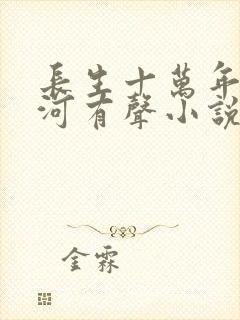 長生十萬年
河有聲小說
金霖